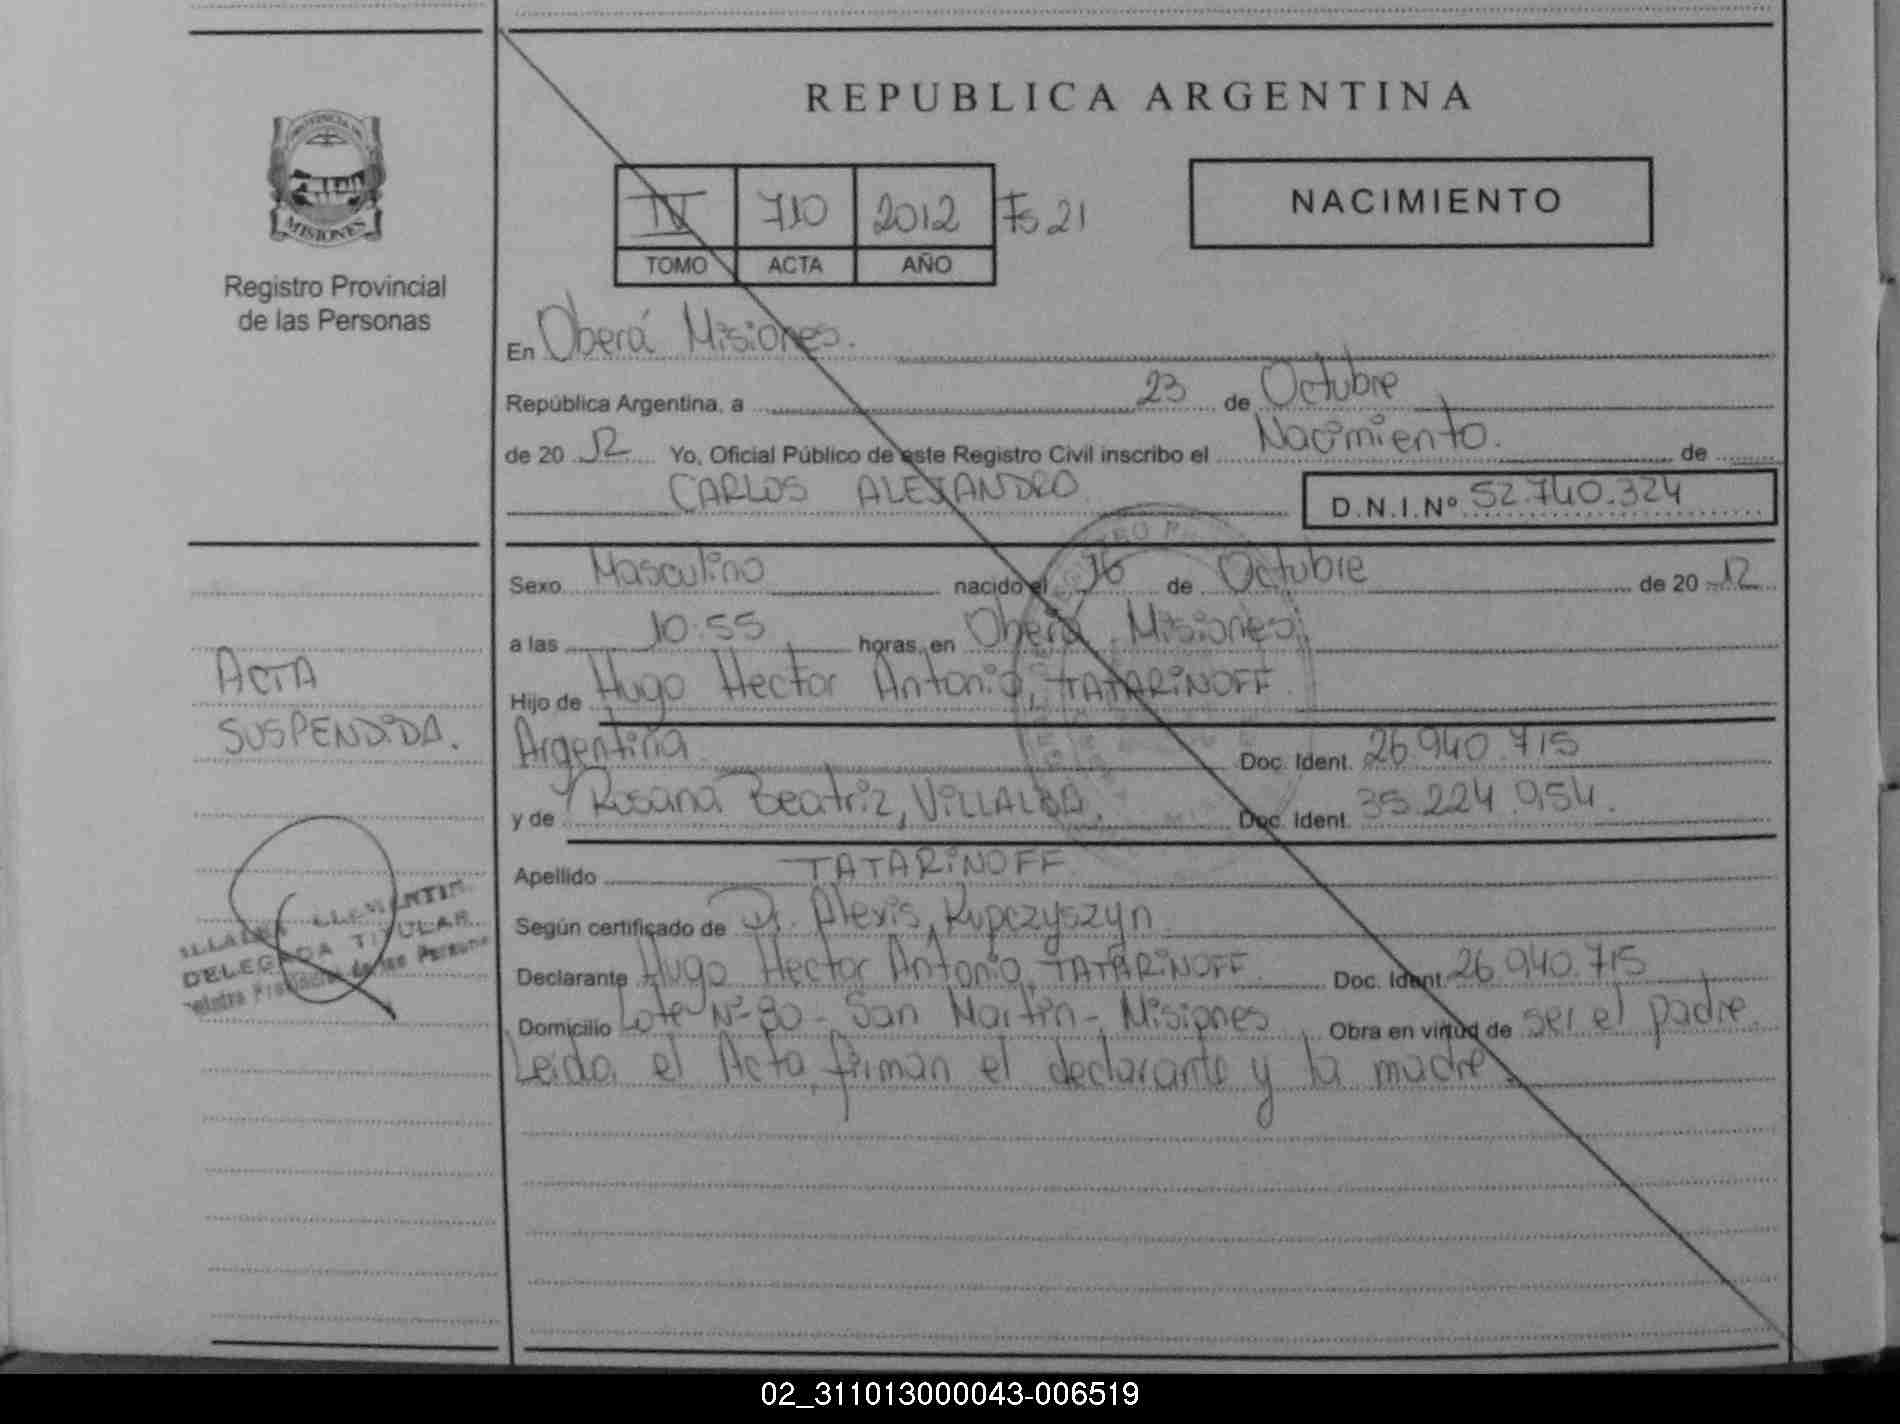 REPUBLICA ARGENTINA
PROVINCIA DE
MISIONES
Registro Provincial
de las Personas
IV 710 2012 Fs 21
TOMO ACTA AÑO
NACIMIENTO
En Oberá Misiones.
República Argentina, a 23 de Octubre
de 20 12 Yo, Oficial Público de este Registro Civil inscribo el Nacimiento. de
CARLOS ALEJANDRO D.N.I.Nº 52.740.324
Sexo Masculino nacido el 16 de Octubre de 20 12
a las 10.55 horas, en Oberá, Misiones.
Hijo de Hugo Hector Antonio, TATARINOFF.
Argentina. Doc. Ident. 26.940.715
y de Rosana Beatriz, VILLALBA. Doc. Ident. 35.224.954.
Apellido TATARINOFF
Según certificado de Dr. Alexis, Kupczyszyn
Declarante Hugo Hector Antonio, TATARINOFF. Doc. Ident. 26.940.715
Domicilio Lote Nº 80 - San Martin - Misiones Obra en virtud de ser el padre.
Leida el Acta, firman el declarante y la madre.
ACTA
SUSPENDIDA.
DELEGADA TITULAR
de las
02_311013000043-006519